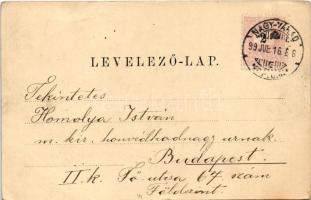 NAGY-VÁRAD
99 JUL. 16. É 6
LEVELEZŐ-LAP.
Tekintetes
Homolya István
m. kir. honvédhadnagy urnak.
Budapest.
II. k. Fő-utcza 67. szám
Földszint.